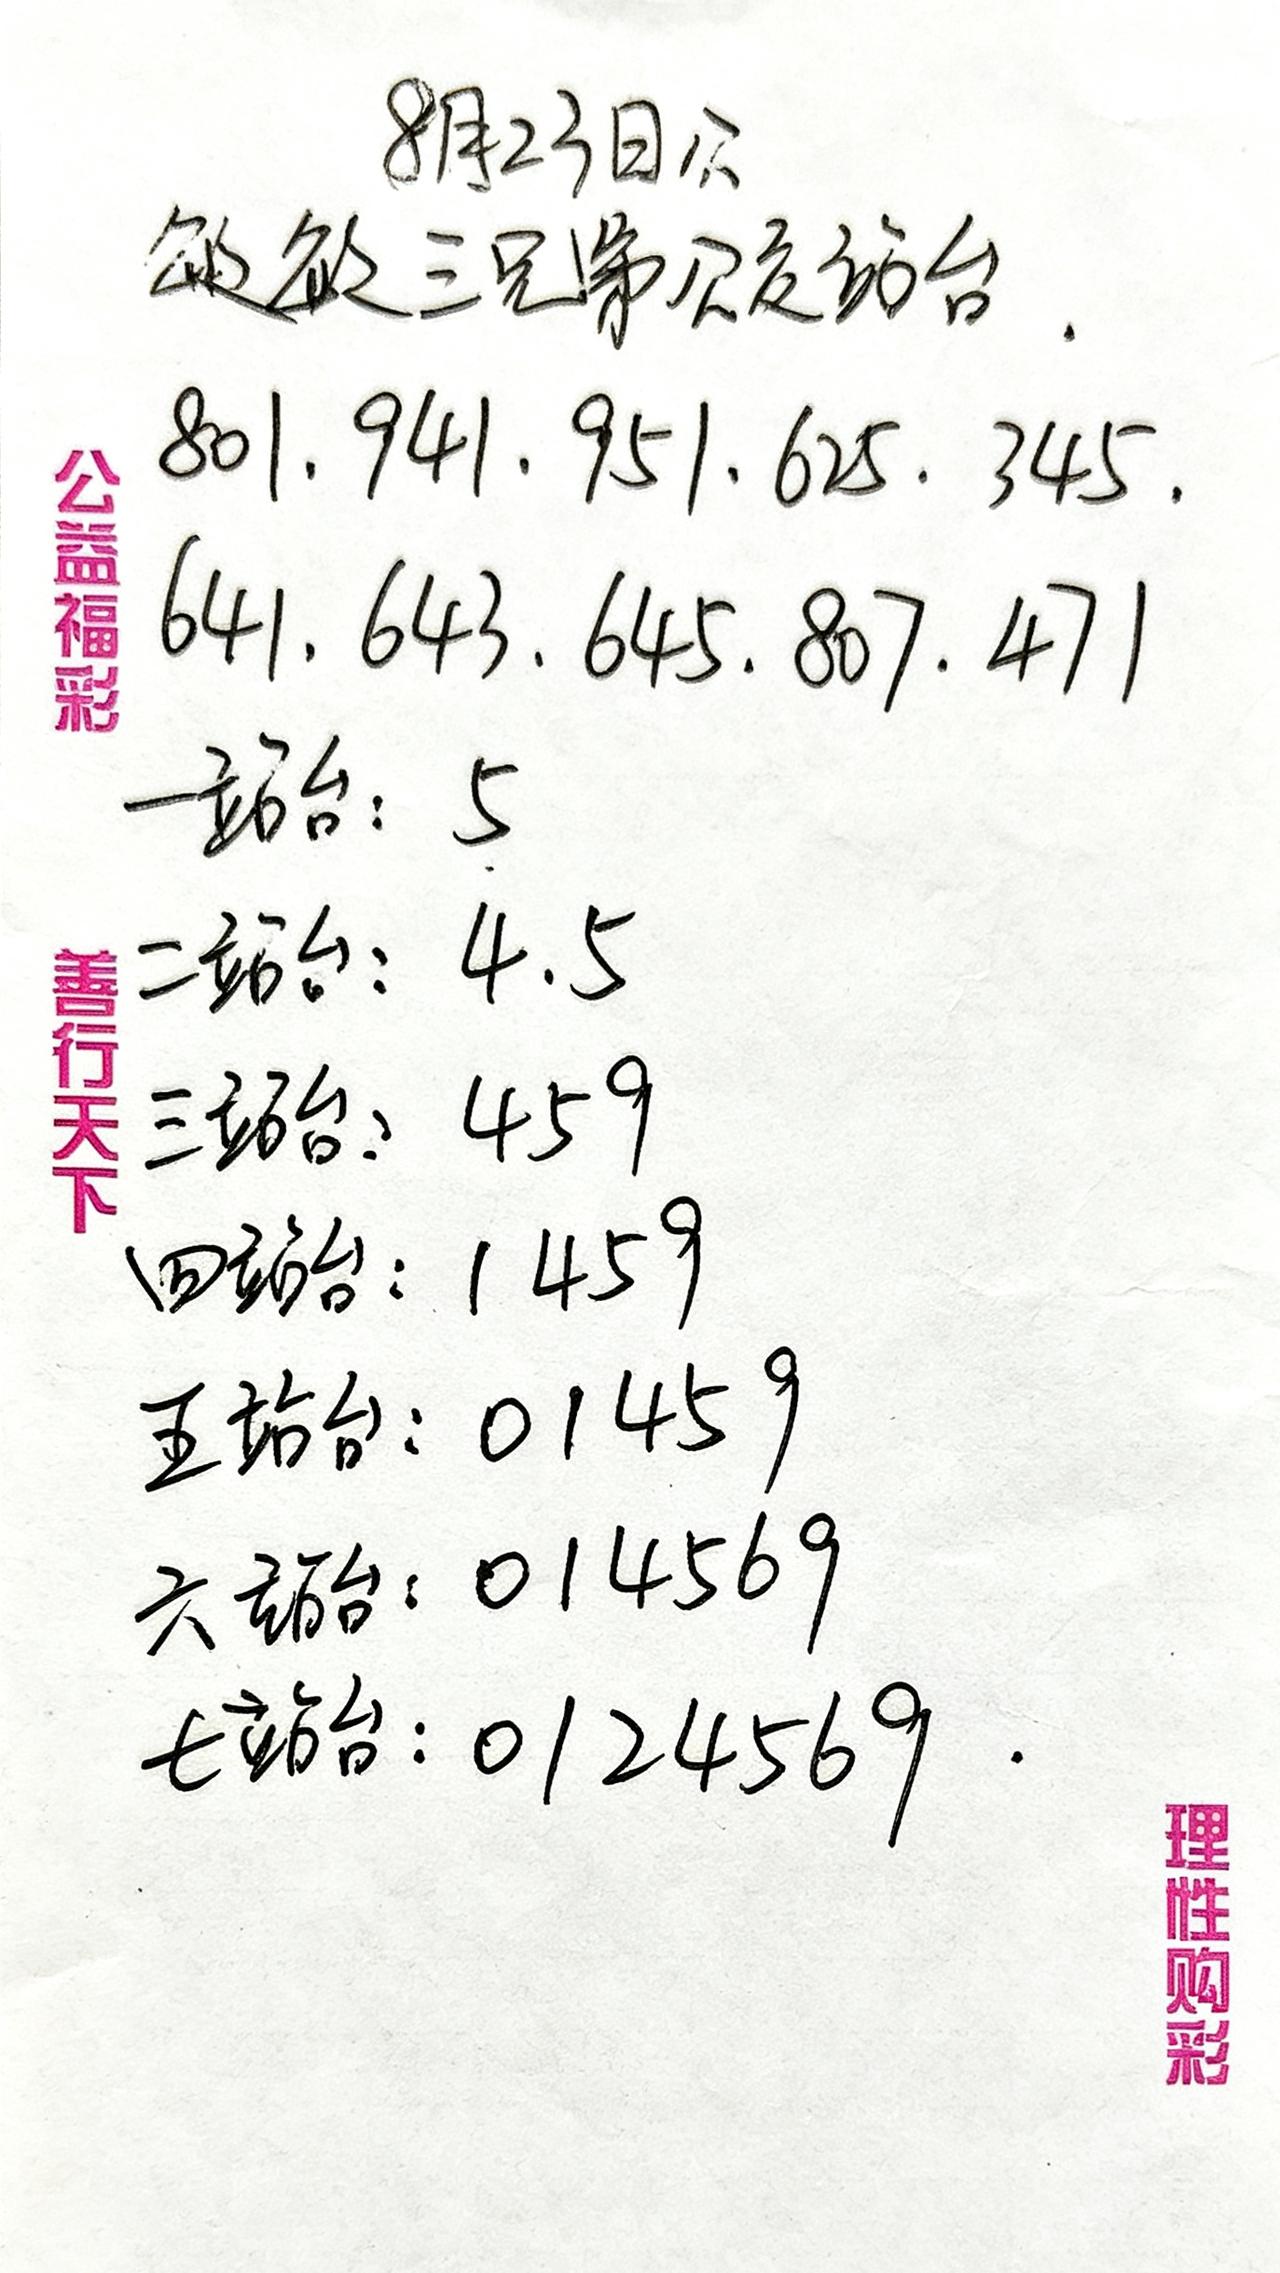 8月23日仅
敏敏三兄弟仅友站台.
801.941.951.625.345.
641.643.645.807.471
一站台：5
二站台：4.5
三站台：459
四站台：1459
五站台：01459
六站台：014569
七站台：0124569.
公益福彩
善行天下
理性购彩